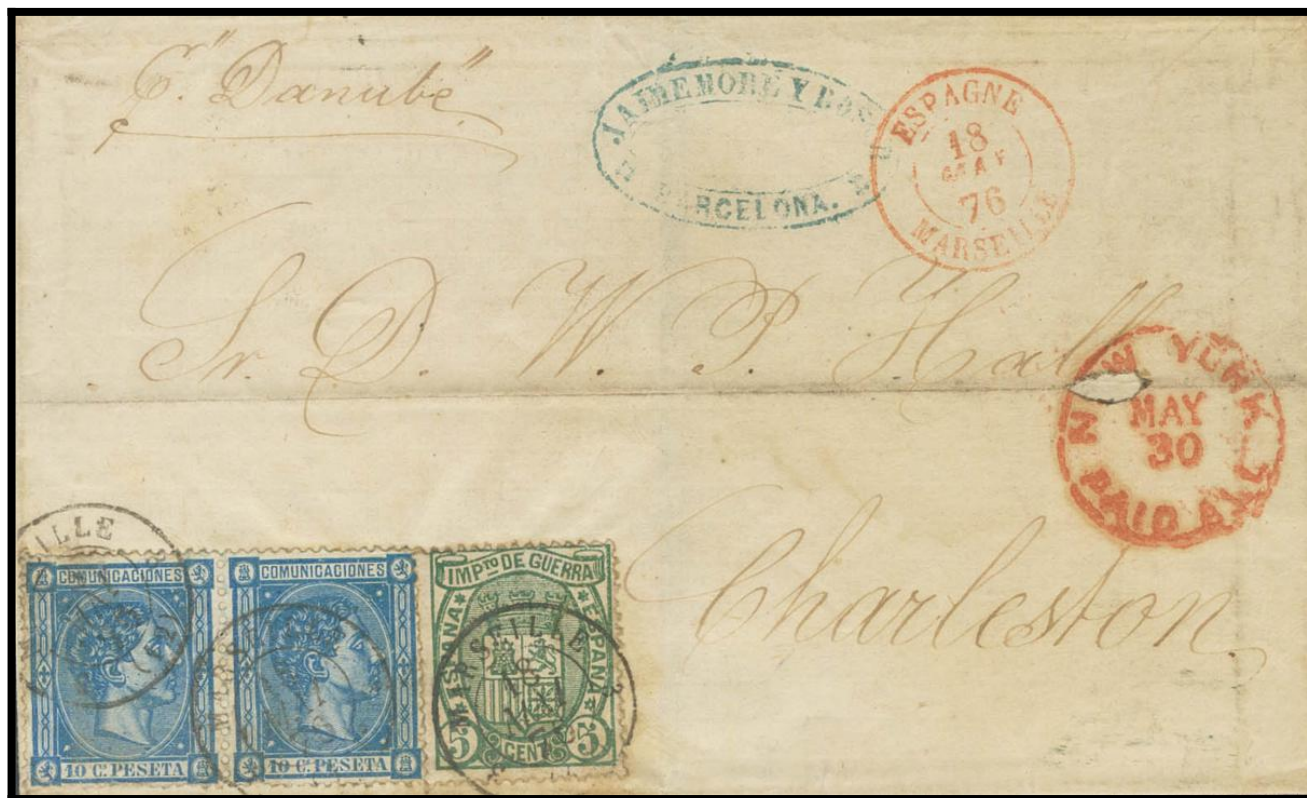 "Danube"
JAIME MORE Y BOSCH
BARCELONA.
ESPAGNE
18
MAI
76
MARSEILLE
Sr. D. W. P. Hall
NEW YORK
MAY
30
PAID ALL
Charleston
MARSEILLE
COMUNICACIONES
10 Cs. PESETA
COMUNICACIONES
10 Cs. PESETA
MARSEILLE
IMPTO DE GUERRA
ESPAÑA
ESPAÑA
5 CENTS 5
MARSEILLE
18
MAI